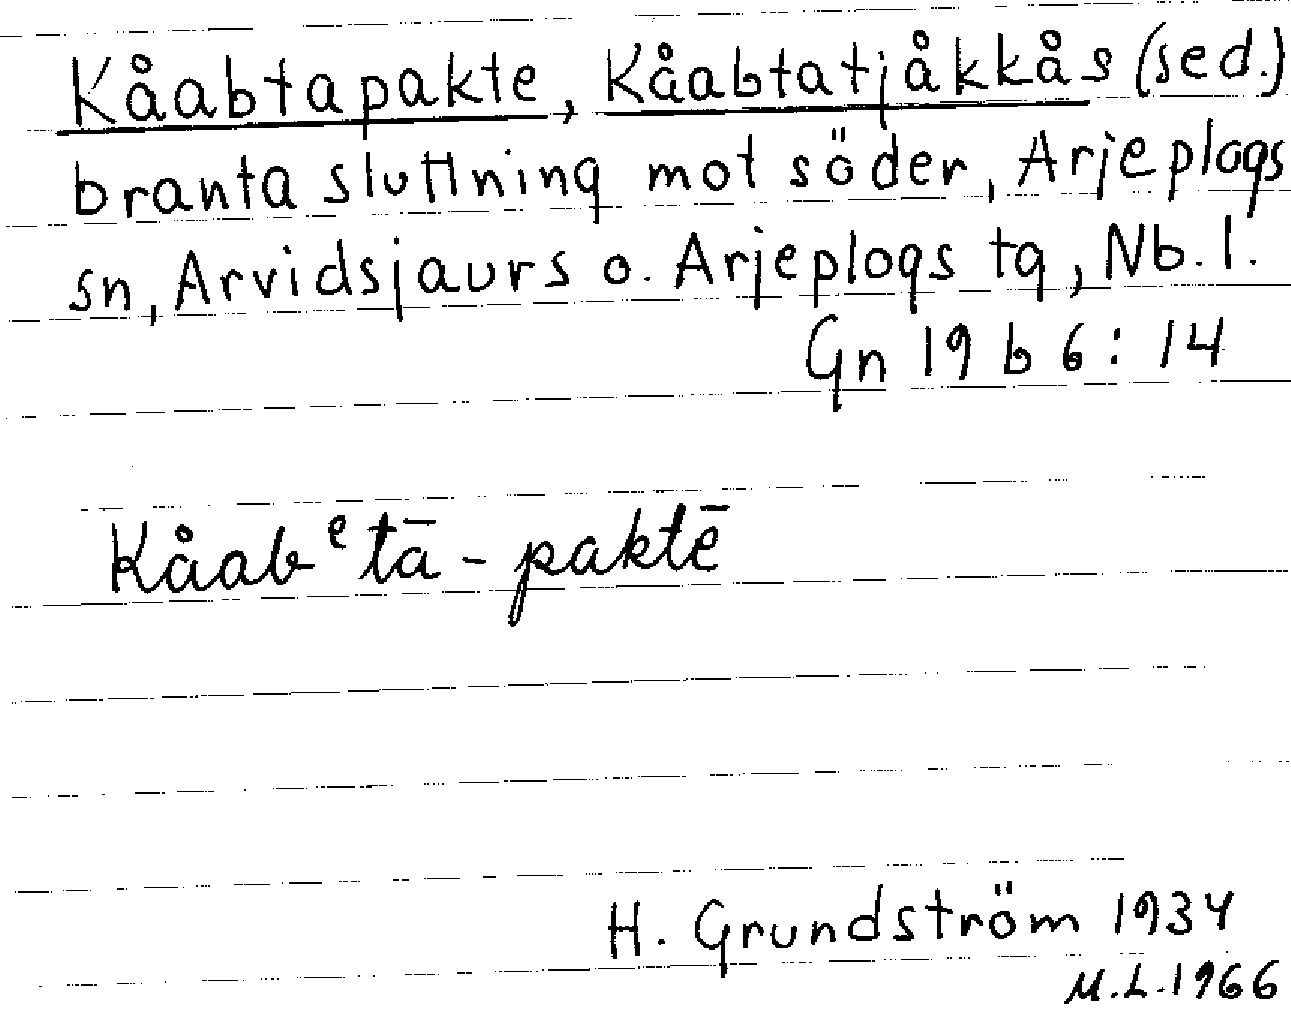 Kåabtapakte, Kåabtatjåkkås (sed.)
branta sluttning mot söder, Arjeplogs
sn, Arvidsjaurs o. Arjeplogs tg, Nb. l.
Gn 19 b 6: 14
Kåabᵉtā - paktē
H. Grundström 1934
M.L. 1966